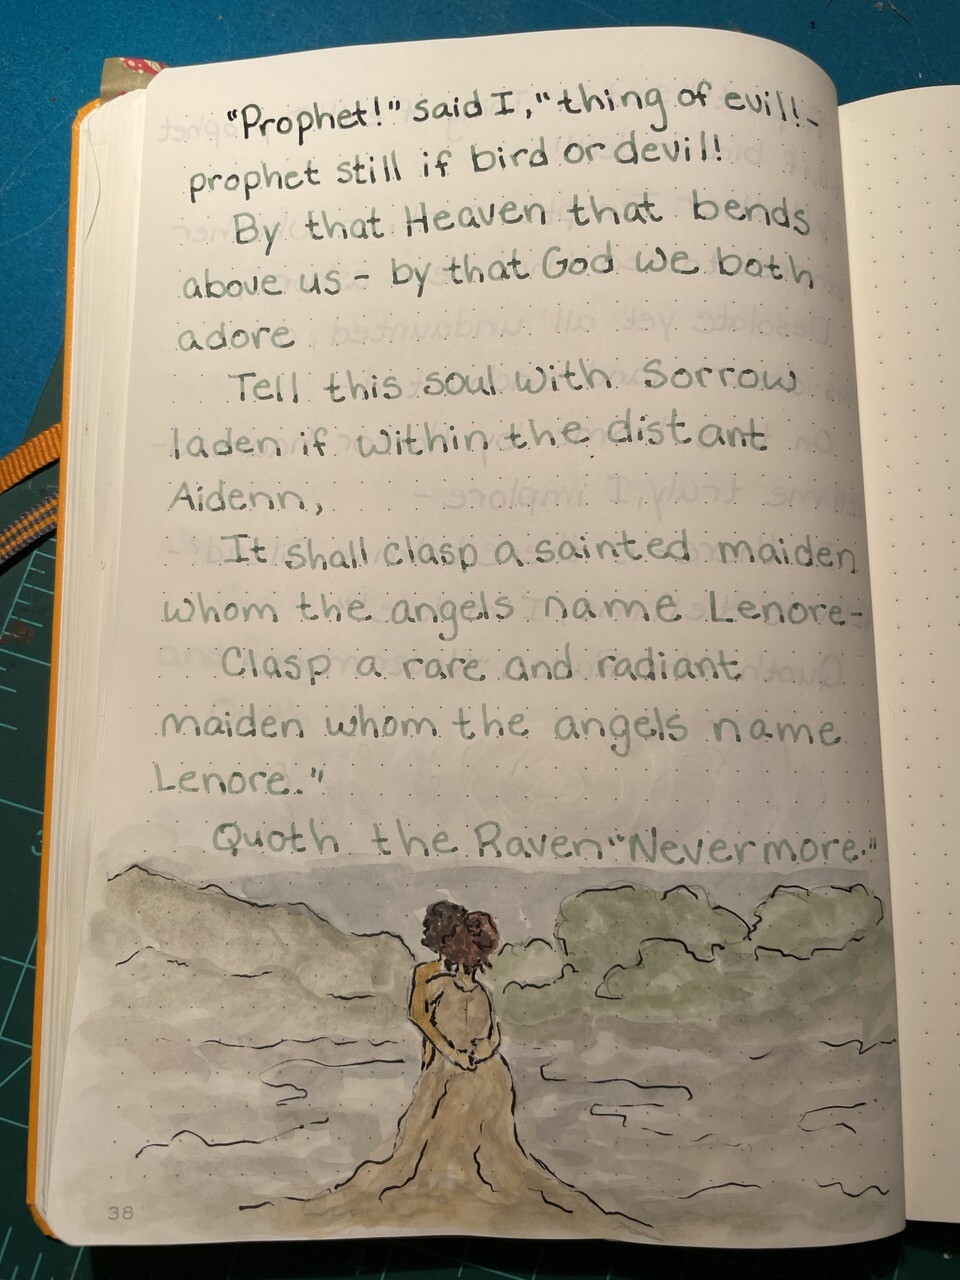 "Prophet!" said I, "thing of evil! -
prophet still if bird or devil!
By that Heaven that bends
above us - by that God we both
adore
Tell this soul with sorrow
laden if within the distant
Aidenn,
It shall clasp a sainted maiden
whom the angels name Lenore-
Clasp a rare and radiant
maiden whom the angels name
Lenore."
Quoth the Raven "Nevermore."
38